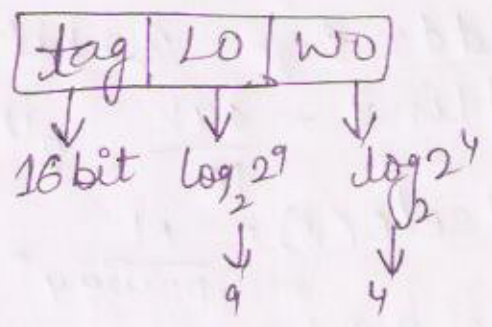 tag LO WO
16 bit log₂2⁹ log₂2⁴
9 4